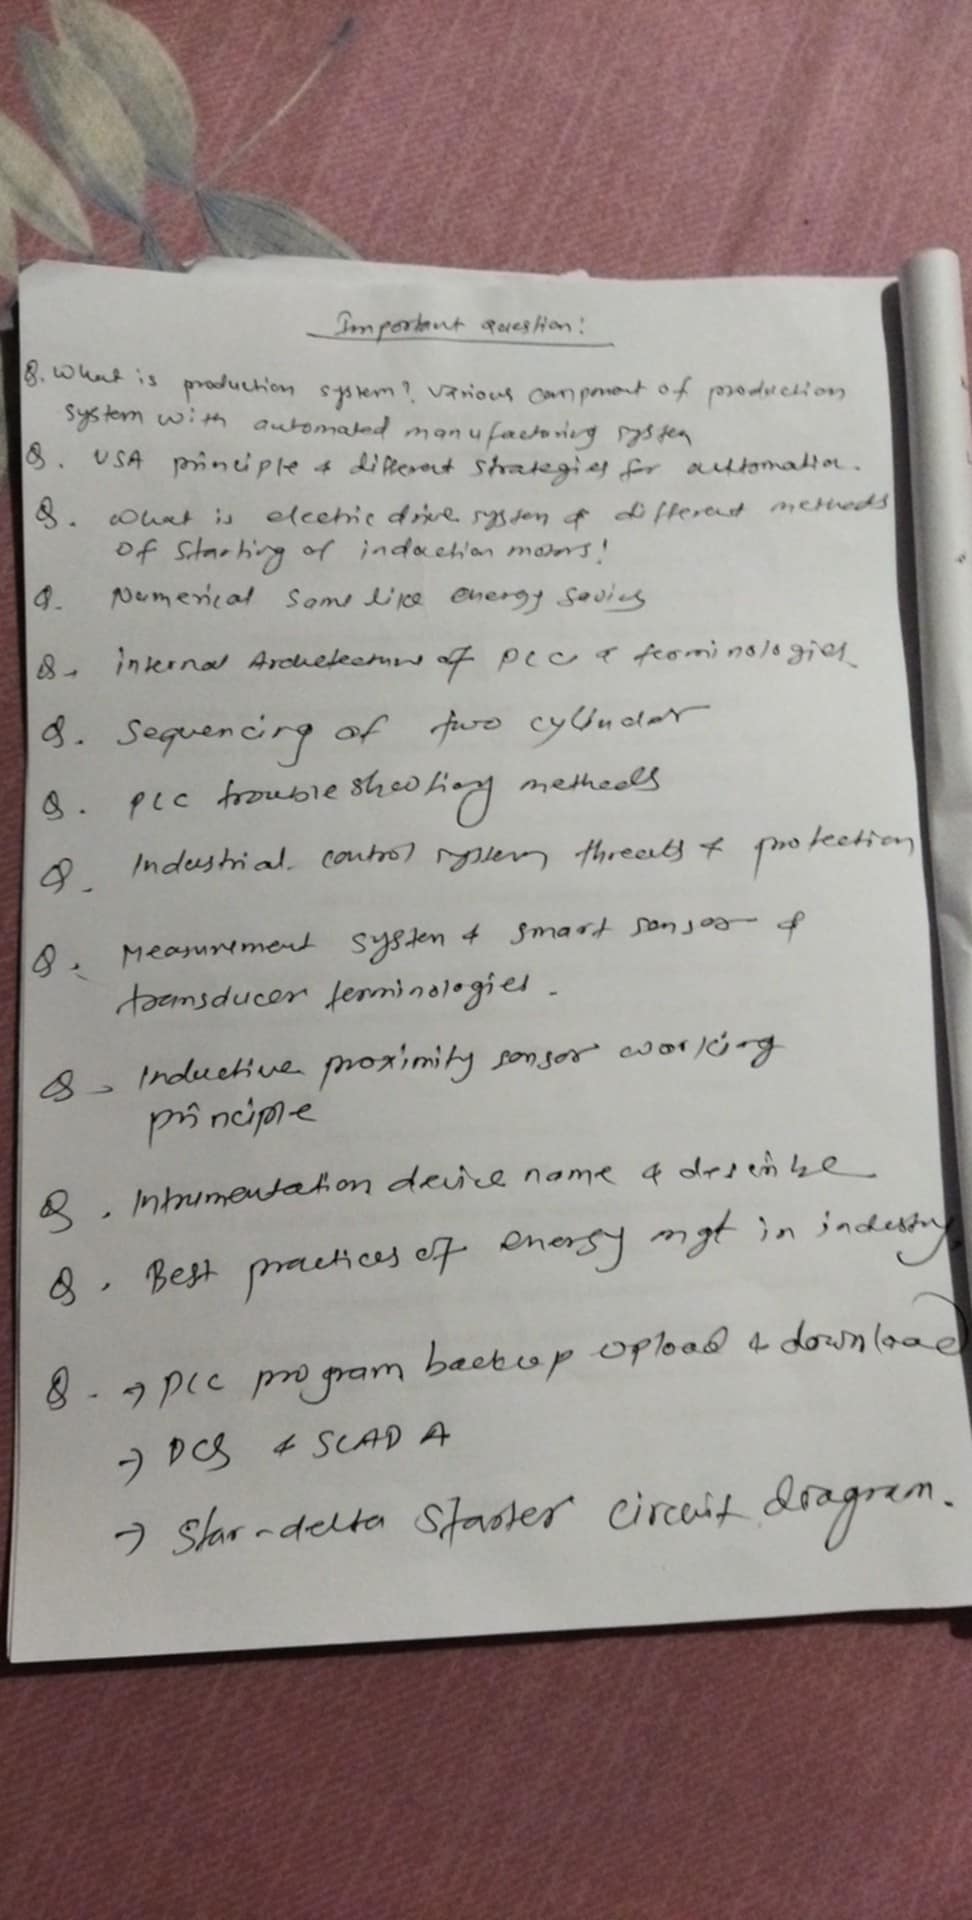 Important question:
Q. What is production system? Various component of production
system with automated manufactoring system
Q. USA principle & different strategies for automation.
Q. What is electric drive system & different methods
of starting of induction motors!
Q. Numerical some like energy saving
Q. internal Architecture of PLC & terminologies
Q. Sequencing of two cylinder
Q. PLC trouble shooting methods
Q. Industrial control system threats & protection
Q. Measurement system & smart sensor &
transducer terminologies.
Q. Inductive proximity sensor working
principle
Q. Intrumentation device name & describe
Q. Best practices of energy mgt in industry
Q. → PLC program backup upload & download
→ DCS & SCADA
→ Star-delta Starter circuit diagram.